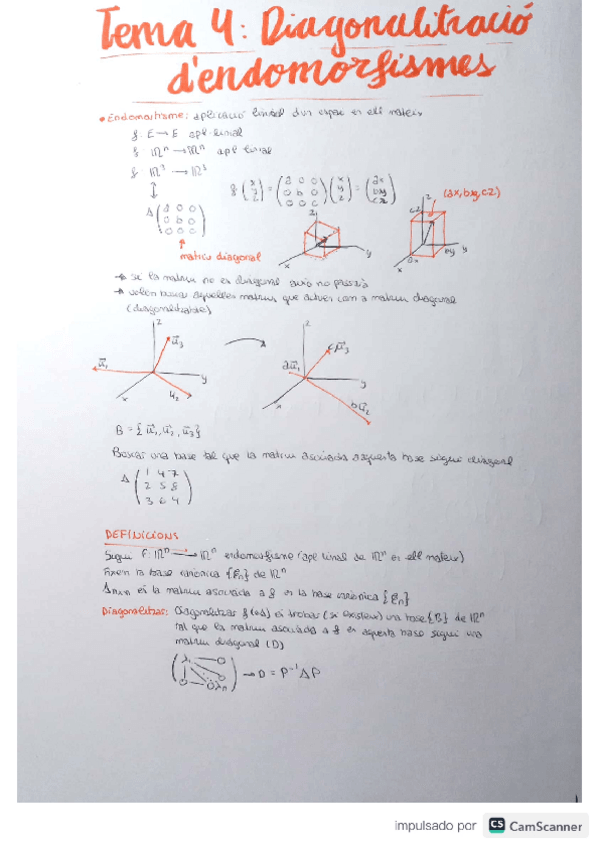 Tema 4: Diagonalització
d'endomorfismes
• Endomorfisme: aplicació lineal d'un espai en ell mateix
f: E → E apl. lineal
f: ℝⁿ → ℝⁿ apl lineal
f: ℝ³ → ℝ³
f (x y z) = (a 0 0 / 0 b 0 / 0 0 c) (x y z) = (ax by cz)
(ax, by, cz)
A (a 0 0 / 0 b 0 / 0 0 c)
matriu diagonal
z
y
x
z
cz
ax
by
y
x
→ si la matriu no es diagonal això no passa
→ volem buscar aquelles matrius que actuen com a matriu diagonal
(diagonalitzable)
z
u⃗₃
u⃗₁
y
u₂
x
z
cu⃗₃
au⃗₁
y
bu⃗₂
x
B = { u⃗₁, u⃗₂, u⃗₃}
Buscar una base tal que la matriu associada aquesta base sigui diagonal
A (1 4 7 / 2 5 8 / 3 6 4)
DEFINICIONS
Sigui F: ℝⁿ → ℝⁿ endomorfisme (apl lineal de ℝⁿ en ell mateix)
Fixem la base canònica {en} de ℝⁿ
Anxn es la matriu associada a f en la base canònica {en}
Diagonalitzar: Diagonalitzar f (o A) es trobar (si existeix) una base {B} de ℝⁿ
tal que la matriu associada a f en aquesta base sigui una
matriu diagonal (D)
(λ₁ 0 / 0 λn) → D = P⁻¹AP
impulsado por CS CamScanner